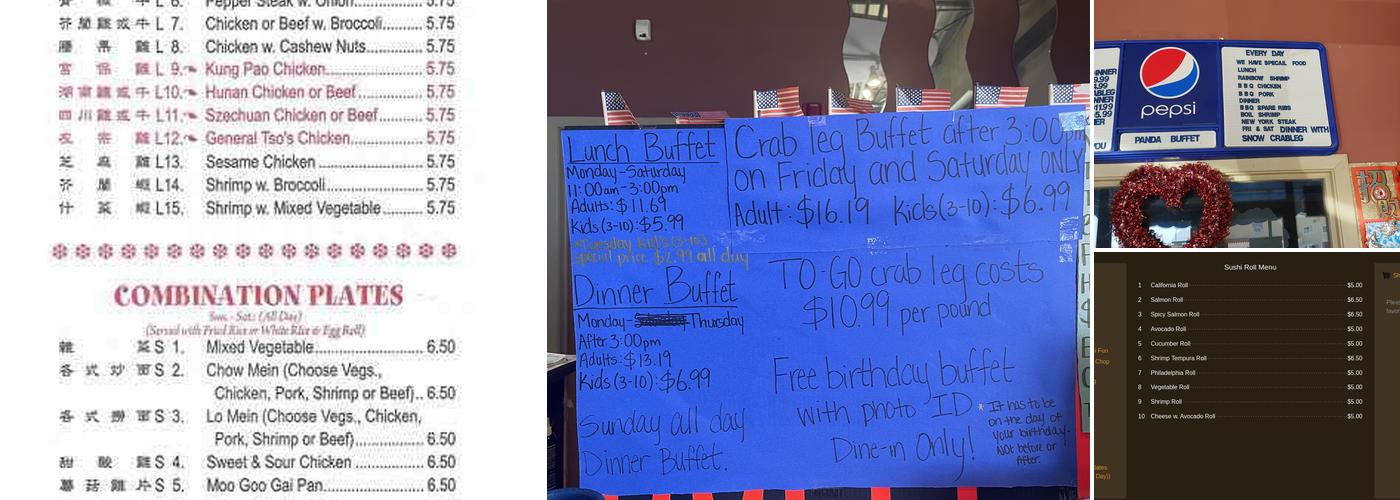 L 6. Pepper Steak w. Onion 5.75
芥蘭雞或牛 L 7. Chicken or Beef w. Broccoli 5.75
腰果雞 L 8. Chicken w. Cashew Nuts 5.75
宮保雞 L 9. Kung Pao Chicken 5.75
湖南雞或牛 L10. Hunan Chicken or Beef 5.75
四川雞或牛 L11. Szechuan Chicken or Beef 5.75
左宗雞 L12. General Tso's Chicken 5.75
芝麻雞 L13. Sesame Chicken 5.75
芥蘭蝦 L14. Shrimp w. Broccoli 5.75
什菜蝦 L15. Shrimp w. Mixed Vegetable 5.75
COMBINATION PLATES
Sun. - Sat.: (All Day)
(Served with Fried Rice or White Rice & Egg Roll)
雜菜 S 1. Mixed Vegetable 6.50
各式炒面 S 2. Chow Mein (Choose Vegs.,
Chicken, Pork, Shrimp or Beef) 6.50
各式撈面 S 3. Lo Mein (Choose Vegs., Chicken,
Pork, Shrimp or Beef) 6.50
甜酸雞 S 4. Sweet & Sour Chicken 6.50
蘑菇雞片 S 5. Moo Goo Gai Pan 6.50
Lunch Buffet
Monday-Saturday
11:00am-3:00pm
Adults: $11.69
Kids (3-10): $5.99
*Tuesday Kid's (3-10)
special price $2.99 all day
Dinner Buffet
Monday- Thursday
After 3:00pm
Adults: $13.19
Kids (3-10): $6.99
Sunday all day
Dinner Buffet.
Crab leg Buffet after 3:00pm
on Friday and Saturday ONLY
Adult: $16.19 Kids (3-10): $6.99
TO-GO crab leg costs
$10.99 per pound
Free birthday buffet
with photo ID
Dine-in Only!
* It has to be
on the day of
your birthday.
Not before or
After.
pepsi
PANDA BUFFET
EVERY DAY
WE HAVE SPECAIL FOOD
LUNCH
RAINBOW SHRIMP
B B Q CHICKEN
B B Q PORK
DINNER
BBQ SPARE RIBS
BOIL SHRIMP
NEW YORK STEAK
FRI & SAT DINNER WITH
SNOW CRABLEG
招
Sushi Roll Menu
1 California Roll $5.00
2 Salmon Roll $6.50
3 Spicy Salmon Roll $6.50
4 Avocado Roll $5.00
5 Cucumber Roll $5.00
6 Shrimp Tempura Roll $6.50
7 Philadelphia Roll $5.00
8 Vegetable Roll $5.00
9 Shrimp Roll $5.00
10 Cheese w. Avocado Roll $5.00